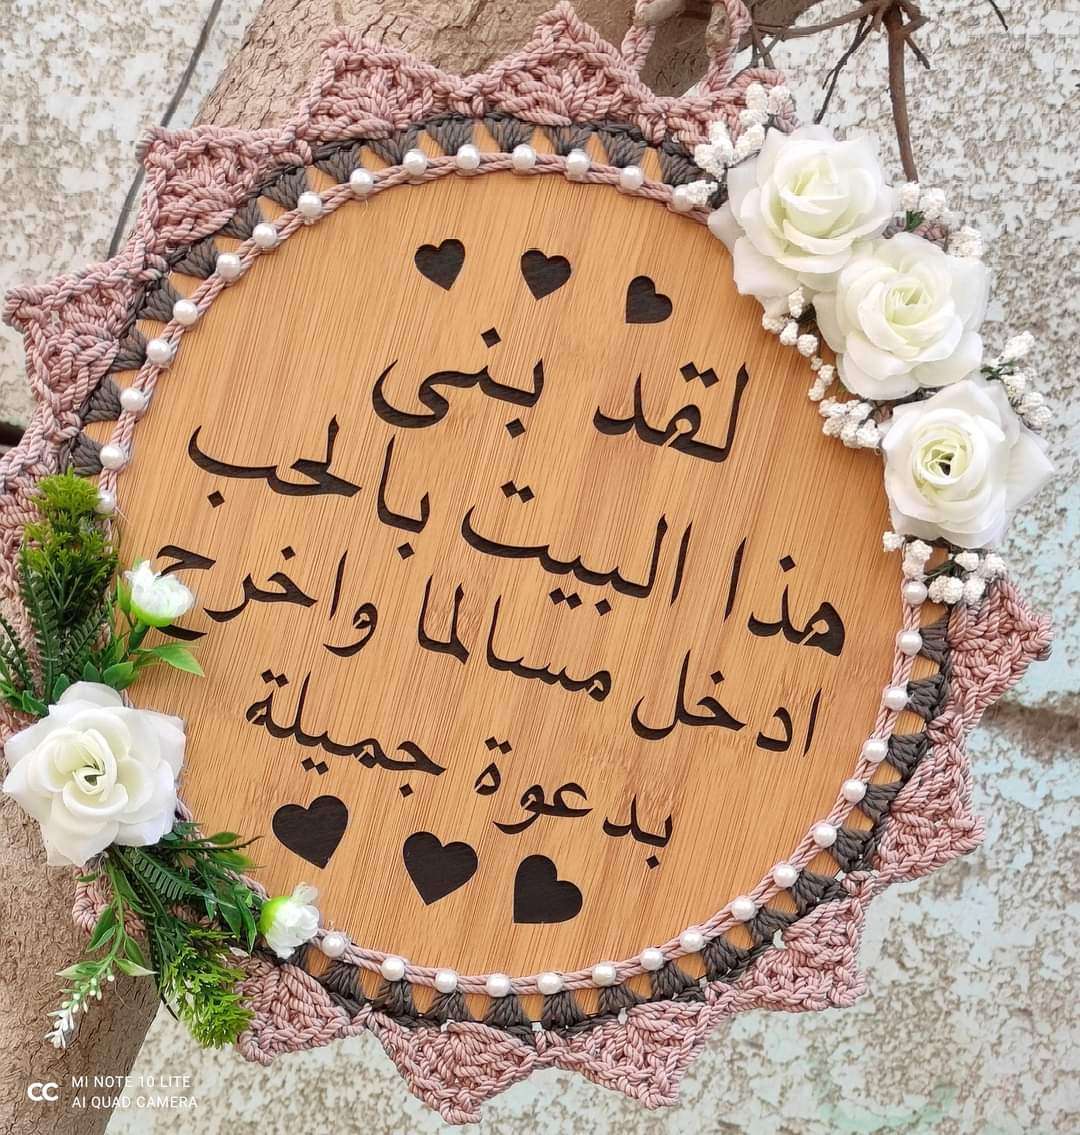 لقد بنى
هذا البيت بالحب
ادخل مسالما واخرج
بدعوة جميلة
MI NOTE 10 LITE
AI QUAD CAMERA